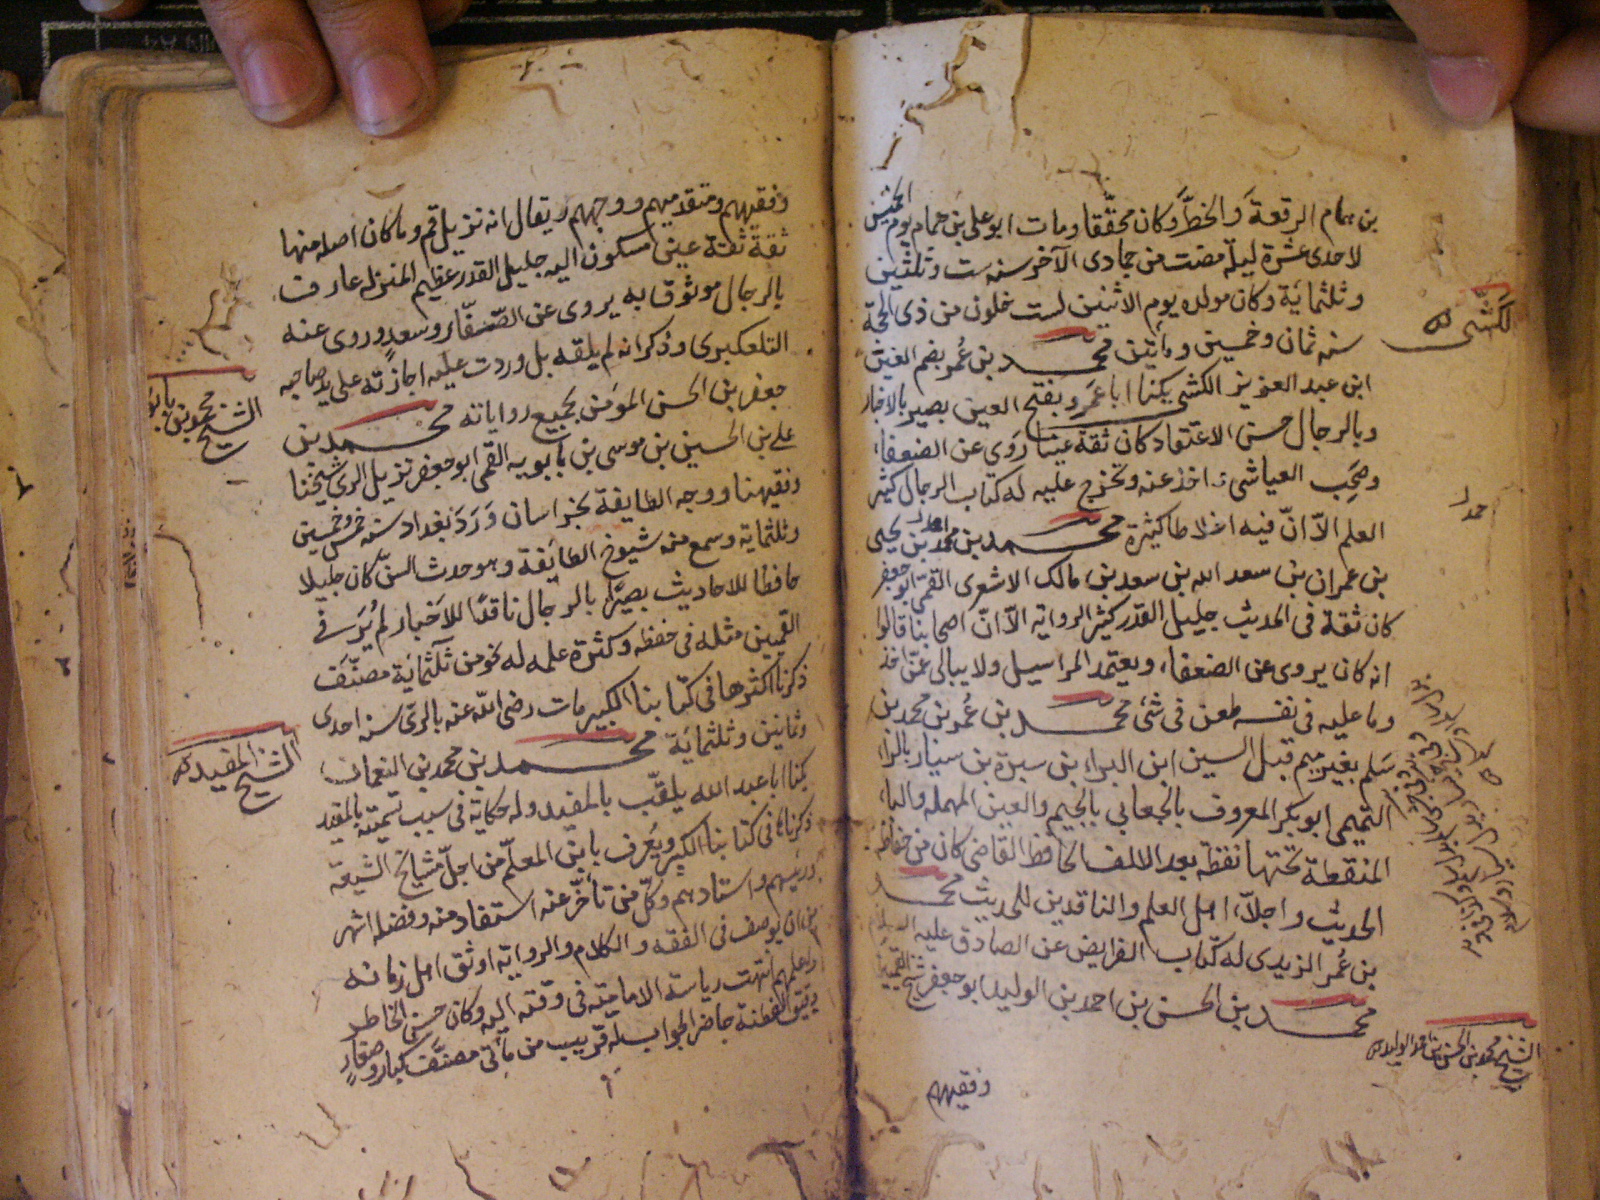 بن همام الرقعة والخط وكان محققا ومات ابو على بن همام يوم الخميس
لاحدى عشرة ليلة مضت من جمادى الآخر سنه ست وثلثين
وثلثمائة وكان مولده يوم الاثنين لست خلون من ذى الحجة
سنه ثمان وخمسين ومأتين محمد بن عُمر بضم العين
ابن عبد العزيز الكشى يكنا ابا عَمرو بفتح العين بصير بالاخبار
وبالرجال حسن الاعتقاد كان ثقة عينا رَوَى عن الضعفاء
وصَحِب العياشى اخذ عنه وتخرج عليه له كتاب الرجال كثير
العلم الاّ انّ فيه اغلاطا كثيرة محمد بن احمد بن يحيى
بن عمران بن سعد الله بن سعد بن مالك الاشعرى القمى ابو جعفر
كان ثقة فى الحديث جليل القدر كثير الرواية الاّ انّ اصحابنا قالوا
انه كان يروى عن الضعفاء ويعتمد المراسيل ولا يبالى عمّن اخذ
وما عليه فى نفسه طعن فى شئ محمد بن عُمر بن محمد بن
سَلم بغير ميم قبل السين ابن البراء بن سبرة بن سيار بالراء
التميمى ابو بكر المعروف بالجعابي بالجيم والعين المهمله والباء
المنقطة تحتها نقطة بعد الالف الحافظ القاضى كان من حفاظ
الحديث واجلاّء اهل العلم والناقدين للحديث محمد
بن عُمر الزيدى له كتاب الفرايض عن الصادق عليه السلام
محمد بن الحسن بن احمد بن الوليد ابو جعفر شيخ القميين
وفقيههم
الكَشّى
احمد
الشيخ محمد بن الحسن بن احمد الوليد
وفقيههم ومتقدميهم ووجههم ويقال انه نزيل قم وما كان اصله منها
ثقة ثقة عين مسكون اليه جليل القدر عظيم المنزله عارف
بالرجال موثوق به يروى عن الصّفّار وسعد وروى عنه
التلعكبرى وذكر انه لم يلقه بل وردت عليه اجازته على يد صاحبه
جعفر بن الحسن المؤمن بجميع رواياته محمد بن
على بن الحسين بن موسى بن بابويه القمى ابو جعفر نزيل الرى شيخنا
وفقيهنا ووجه الطايفة بخراسان وَرَدَ بغداد سنه خمس وخمسين
وثلثماية وسمع منه شيوخ الطايفة وهو حدث السن كان جليلا
حافظا للاحاديث بصيرا بالرجال ناقدًا للاخبار لم يُرَ فى
القميين مثله فى حفظه وكثرة علمه له نحو من ثلثمائة مصنّف
ذكرنا اكثرها فى كتابنا الكبير مات رضى الله عنه بالرىّ سنه احدى
وثمانين وثلثمائة محمد بن محمد بن النعمان
يكنا ابا عبد الله يلقّب بالمفيد وله حكاية فى سبب تسميته بالمفيد
ذكرناها فى كتابنا الكبير ويُعرف بابن المعلّم من اجلّ مشايخ الشيعة
ورئيسهم واستادهم وكلّ من تأخّر عنه استفاد منه وفضله اشهر
من ان يوصف فى الفقه والكلام والرواية اوثق اهل زمانه
واعلمهم انتهت رياسة الامامية فى وقته اليه وكان حسن الخاطر
دقيق الفطنة حاضر الجواب له قريب من مأتى مصنّف كبار وصغار
الشيخ محمد بن بابويه
الشيخ المفيد